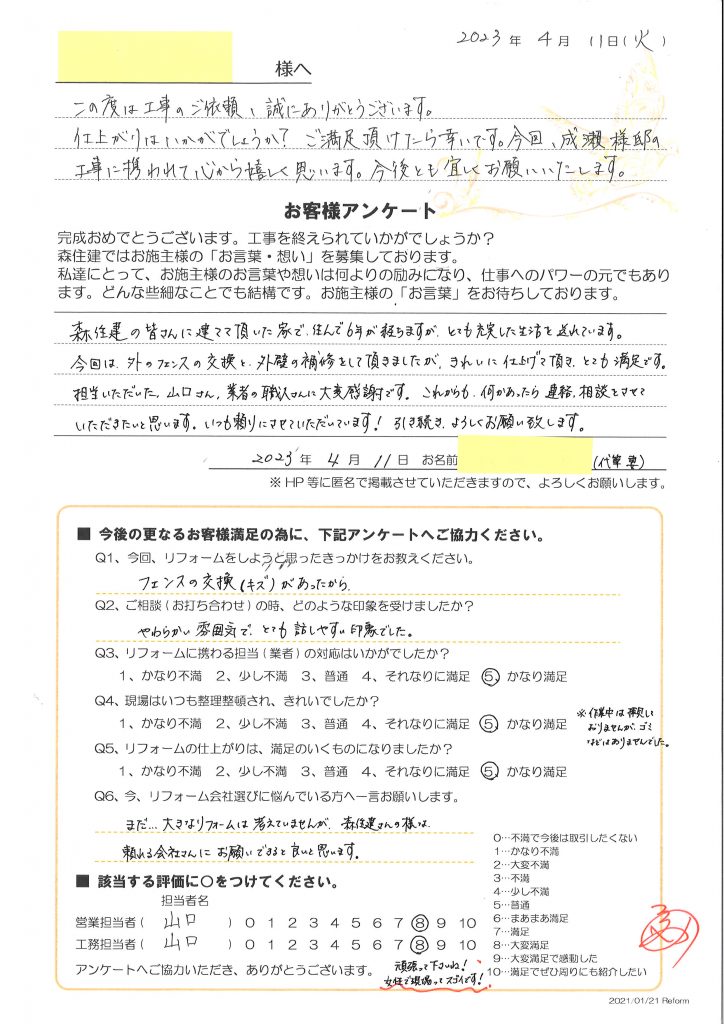 2023年 4月 11日(火)
様へ
この度は工事のご依頼、誠にありがとうございます。
仕上がりはいかがでしょうか? ご満足頂けたら幸いです。今回、成瀬様邸の
工事に携われて心から嬉しく思います。今後とも宜しくお願いいたします。
お客様アンケート
完成おめでとうございます。工事を終えられていかがでしょうか?
森住建ではお施主様の「お言葉・想い」を募集しております。
私達にとって、お施主様のお言葉や想いは何よりの励みになり、仕事へのパワーの元でもあり
ます。どんな些細なことでも結構です。お施主様の「お言葉」をお待ちしております。
森住建の皆さんに建てて頂いた家で、住んで6年が経ちますが、とても充実した生活を送れています。
今回は、外のフェンスの交換と、外壁の補修をして頂きましたが、きれいに仕上げて頂き、とても満足です。
担当いただいた、山口さん、業者の職人さんに大変感謝です。これからも、何かあったら連絡、相談をさせて
いただきたいと思います。いつも頼りにさせていただいています! 引き続き、よろしくお願い致します。
2023年 4月 11日 お名前 (代筆 妻)
※HP等に匿名で掲載させていただきますので、よろしくお願いします。
■ 今後の更なるお客様満足の為に、下記アンケートへご協力ください。
Q1、今回、リフォームをしようと思ったきっかけをお教えください。
フェンスの交換(キズ)があったから。
Q2、ご相談(お打ち合わせ)の時、どのような印象を受けましたか?
やわらかい雰囲気で、とても話しやすい印象でした。
Q3、リフォームに携わる担当(業者)の対応はいかがでしたか?
1、かなり不満 2、少し不満 3、普通 4、それなりに満足 5、かなり満足
Q4、現場はいつも整理整頓され、きれいでしたか?
1、かなり不満 2、少し不満 3、普通 4、それなりに満足 5、かなり満足
※作業中は拝見して
おりませんが、ゴミ
などはありませんでした。
Q5、リフォームの仕上がりは、満足のいくものになりましたか?
1、かなり不満 2、少し不満 3、普通 4、それなりに満足 5、かなり満足
Q6、今、リフォーム会社選びに悩んでいる方へ一言お願いします。
まだ…大きなリフォームは考えていませんが、森住建さんの様な、
頼れる会社さんにお願いできると良いと思います。
■ 該当する評価に○をつけてください。
担当者名
営業担当者( 山口 ) 0 1 2 3 4 5 6 7 8 9 10
工務担当者( 山口 ) 0 1 2 3 4 5 6 7 8 9 10
アンケートへご協力いただき、ありがとうございます。
頑張って下さいね!
女性で現場ってスゴイです!
0…不満で今後は取引したくない
1…かなり不満
2…大変不満
3…不満
4…少し不満
5…普通
6…まあまあ満足
7…満足
8…大変満足
9…大変満足で感動した
10…満足でぜひ周りにも紹介したい
2021/01/21 Reform